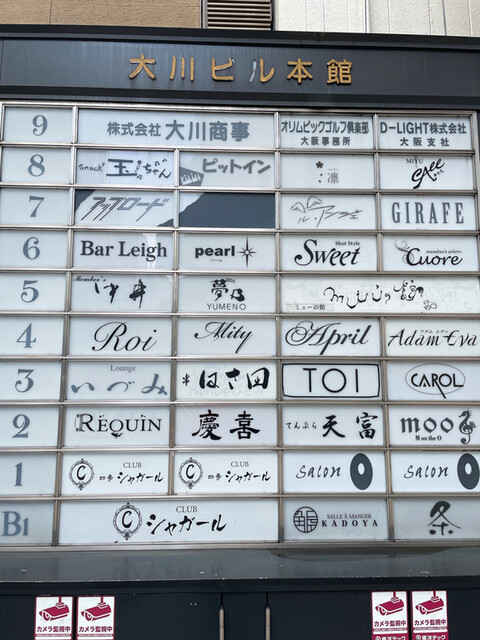 大川ビル本館
9
株式会社 大川商事
オリムピックゴルフ倶楽部
大阪事務所
D-LIGHT株式会社
大阪支社
8
snack
玉ちゃん
ピットイン
凛
MIYU
7
アップロード
ル・リンクェ
GIRAFE
6
Bar Leigh
pearl
Shot Style
Sweet
member's salon
Cuore
5
Member's
ゆ井
夢乃
YUMENO
ミューの館
4
Roi
Mity
April
アダム エヴァ
Adam Eva
3
Lounge
いづみ
はさ田
TOI
CAROL
2
REQUIN
慶喜
てんぷら 天富
moo
M on the O
1
C
CLUB
四季 シャガール
C
CLUB
四季 シャガール
salon O
salon O
B1
C
CLUB
シャガール
SALLE À MANGER
KADOYA
条
カメラ監視中
カメラ監視中
カメラ監視中
カメラ監視中
東洋テック
東洋テック